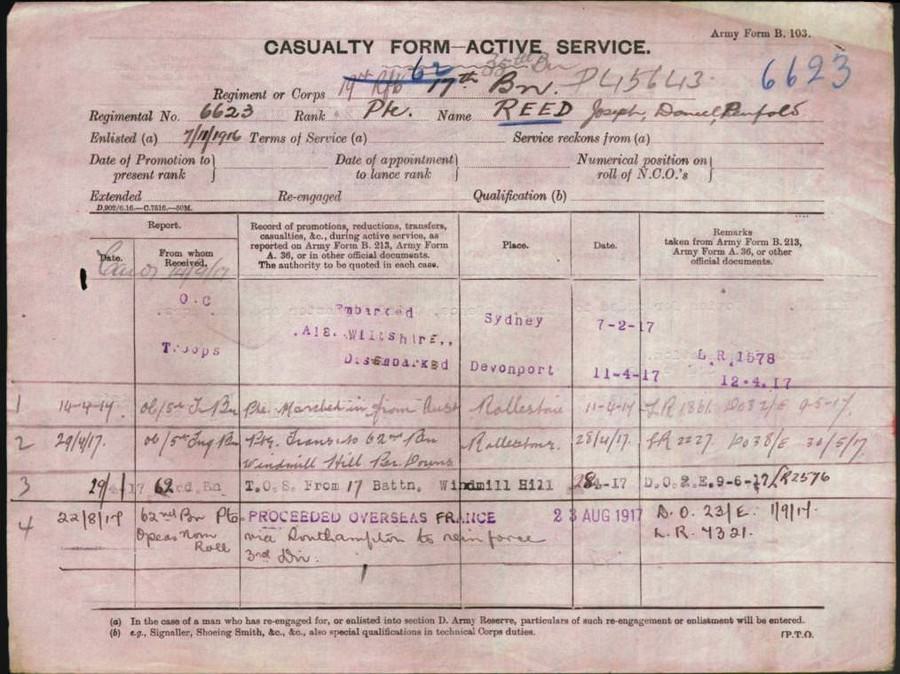 Army Form B. 103.
CASUALTY FORM—ACTIVE SERVICE.
35th Bn
62
Regiment or Corps 17th Bn. 6623
Regimental No. 6623 Rank Pte. Name REED Joseph, Daniel, Penfold
Enlisted (a) 7/11/1916 Terms of Service (a) Service reckons from (a)
Date of Promotion to present rank } Date of appointment to lance rank } Numerical position on roll of N.C.O.'s }
Extended Re-engaged Qualification (b)
D.902/6.16.—C.7516.—50M.
Report.
Date.
From whom Received.
Record of promotions, reductions, transfers, casualties, &c., during active service, as reported on Army Form B. 213, Army Form A. 36, or in other official documents. The authority to be quoted in each case.
Place.
Date.
Remarks taken from Army Form B. 213, Army Form A. 36, or other official documents.
O.C Embarked Sydney 7-2-17
Troops A18. WILTSHIRE.
Disembarked Devonport 11-4-17 L.R.1578
12.4.17
1 14-4-17 Pte. Marched in from Aust 11-4-17 L.R 1861 9-5-17
2 29/4/17. Transf. to 62nd Bn 28/4/17. LR 2227 DO38/E 30/5/17
Windmill Hill Per. Downs
3 62 T.O.S. From 17 Battn. Windmill Hill 28 -17 9-6-17 LR2576
4 22/8/17 62nd Bn Pte PROCEEDED OVERSEAS FRANCE 23 AUG 1917 D.O. 23/E. 1/9/17.
Roll via Southampton to reinforce L.R. 4321.
3rd Div.
(a) In the case of a man who has re-engaged for, or enlisted into section D. Army Reserve, particulars of such re-engagement or enlistment will be entered.
(b) e.g., Signaller, Shoeing Smith, &c., &c., also special qualifications in technical Corps duties.
[P.T.O.